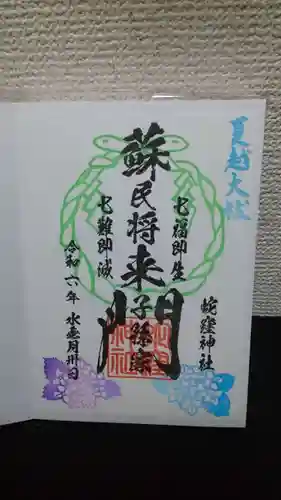 夏越大祓
七福即生
蛇窪神社
蘇民将来
子孫家門
七難即滅
令和六年 水無月卅日